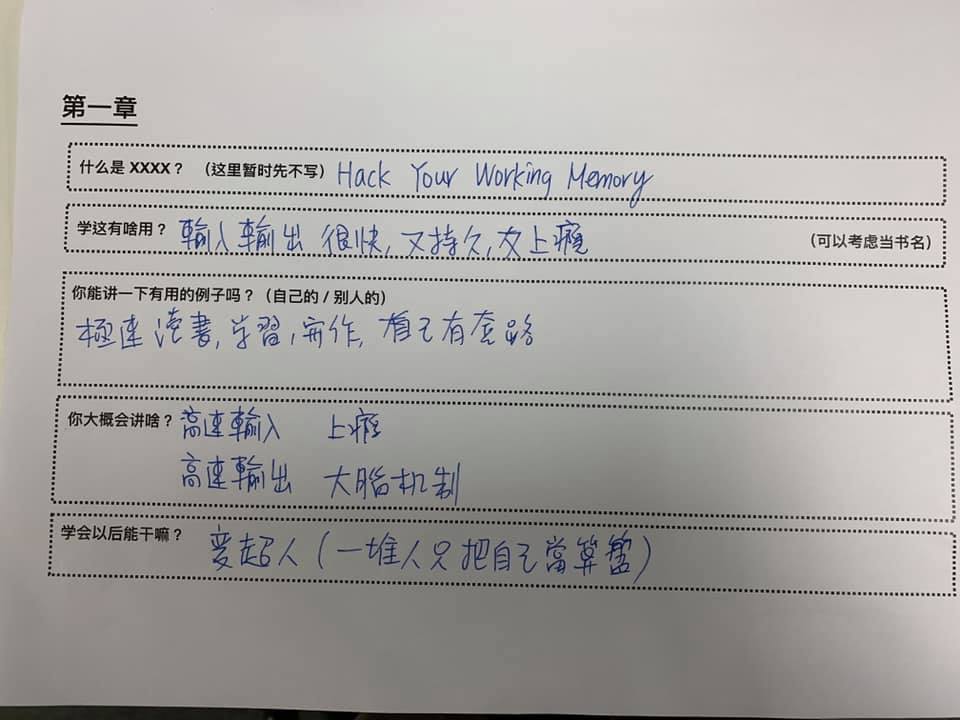 第一章
什么是 XXXX？ （这里暂时先不写） Hack Your Working Memory
学这有啥用？ 輸入輸出 很快, 又持久, 又上癮 （可以考虑当书名）
你能讲一下有用的例子吗？（自己的 / 别人的）
極速读書, 学習, 寫作, 自己有套路
你大概会讲啥？ 高速輸入 上癮
高速輸出 大腦机制
学会以后能干嘛？ 变超人 (一堆人只把自己當算盤)